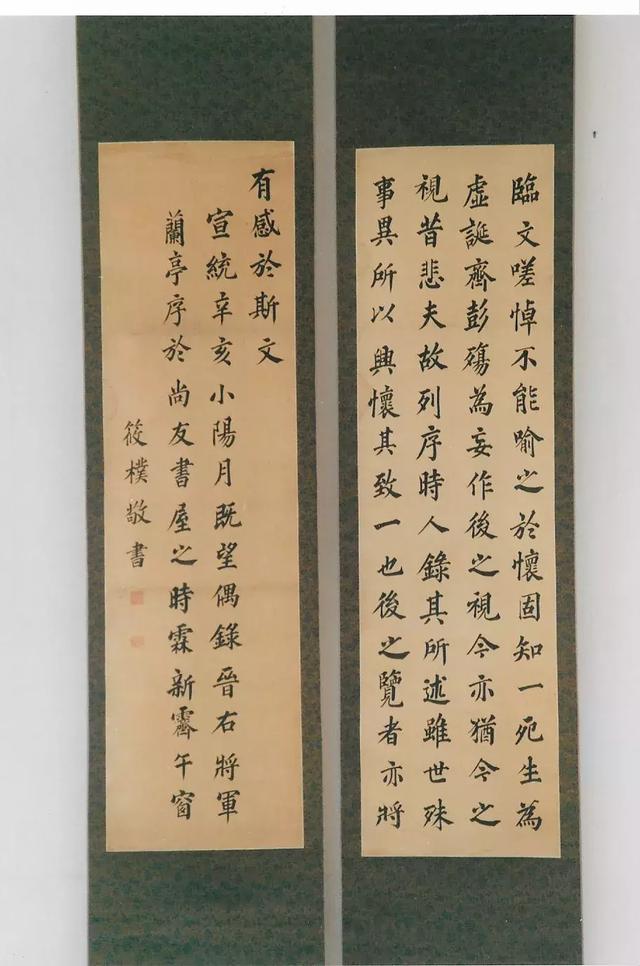 臨文嗟悼不能喻之於懷固知一死生為
虛誕齊彭殤為妄作後之視今亦猶今之
視昔悲夫故列序時人錄其所述雖世殊
事異所以興懷其致一也後之覽者亦將
有感於斯文
宣統辛亥小陽月既望偶錄晉右將軍
蘭亭序於尚友書屋之時霖新霽午窗
筱樸敬書